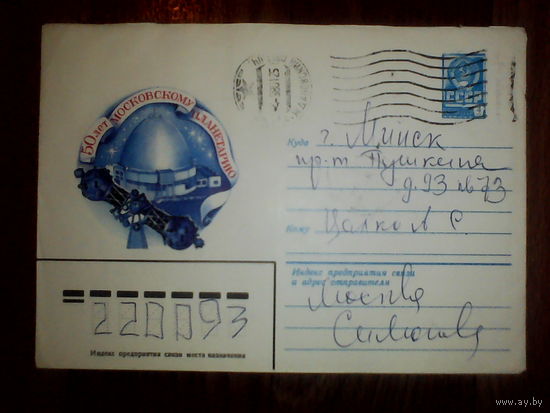 50 лет МОСКОВСКОМУ ПЛАНЕТАРИЮ
СССР
Куда г. Минск
пр-т Пушкина
д. 93 кв 73
Кому Цалко Л. С.
Индекс предприятия связи
и адрес отправителя
Москва
220093
Индекс предприятия связи места назначения
www.ay.by